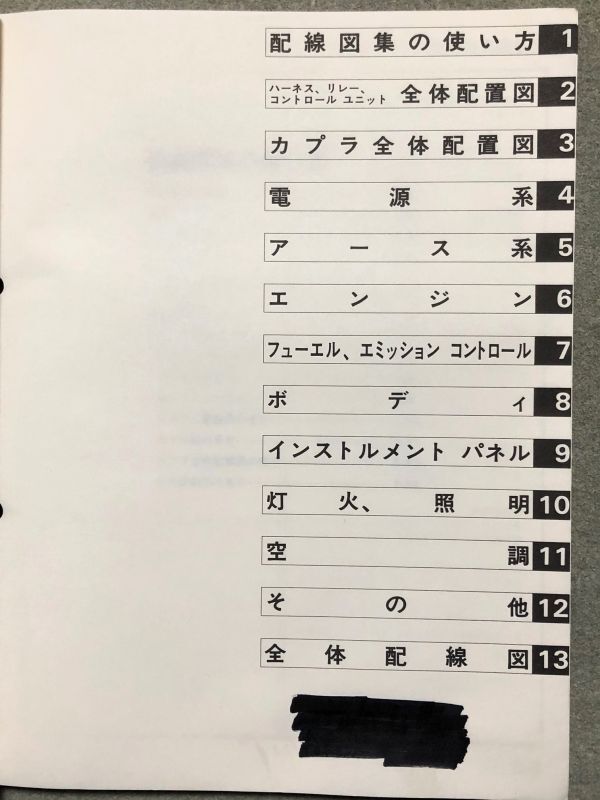 配線図集の使い方 1
ハーネス、リレー、
コントロール ユニット 全体配置図 2
カプラ全体配置図 3
電源系 4
アース系 5
エンジン 6
フューエル、エミッション コントロール 7
ボディ 8
インストルメント パネル 9
灯火、照明 10
空調 11
その他 12
全体配線図 13